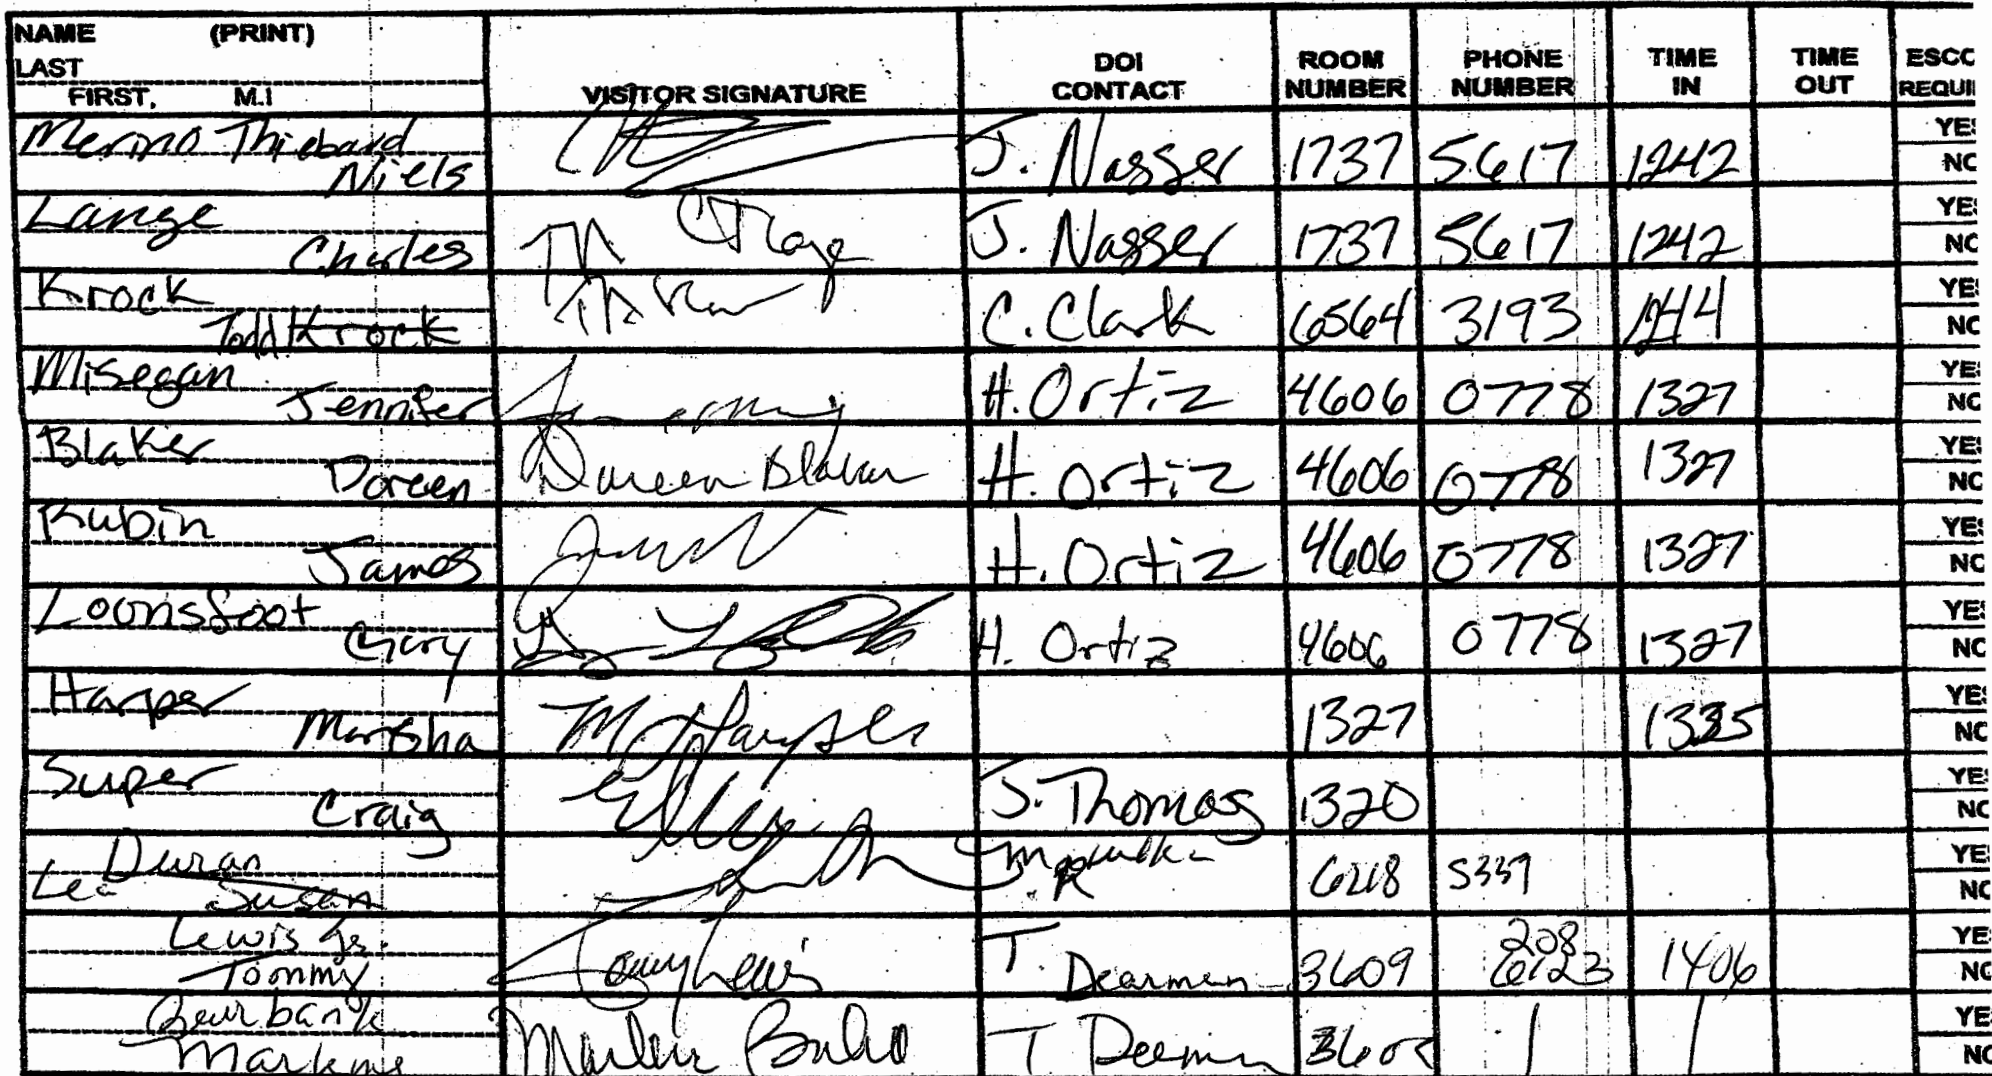 NAME (PRINT)
LAST
FIRST, M.I
VISITOR SIGNATURE
DOI CONTACT
ROOM NUMBER
PHONE NUMBER
TIME IN
TIME OUT
ESCO
REQUI
Merino Thiebaud
Niels
J. Nasser 1737 5617 1242
YES
NO
Lange
Charles
J. Nasser 1737 5617 1242
YES
NO
Krock
Todd Krock
C. Clark 6564 3193 1244
YES
NO
Misegan
Jennifer
H. Ortiz 4606 0778 1327
YES
NO
Blaker
Doreen
Doreen Blaker
H. Ortiz 4606 0778 1327
YES
NO
Rubin
James
H. Ortiz 4606 0778 1327
YES
NO
Loonsfoot
Gary
H. Ortiz 4606 0778 1327
YES
NO
Harper
Marsha
M Harper
1327 1335
YES
NO
Super
Craig
J. Thomas 1320
YES
NO
Duran
Lea Susan
6218 5339
YES
NO
Lewis Jr.
Tommy
Tommy Lewis
T. Dearman 3609 208 6123 1406
YES
NO
T
YES
NO